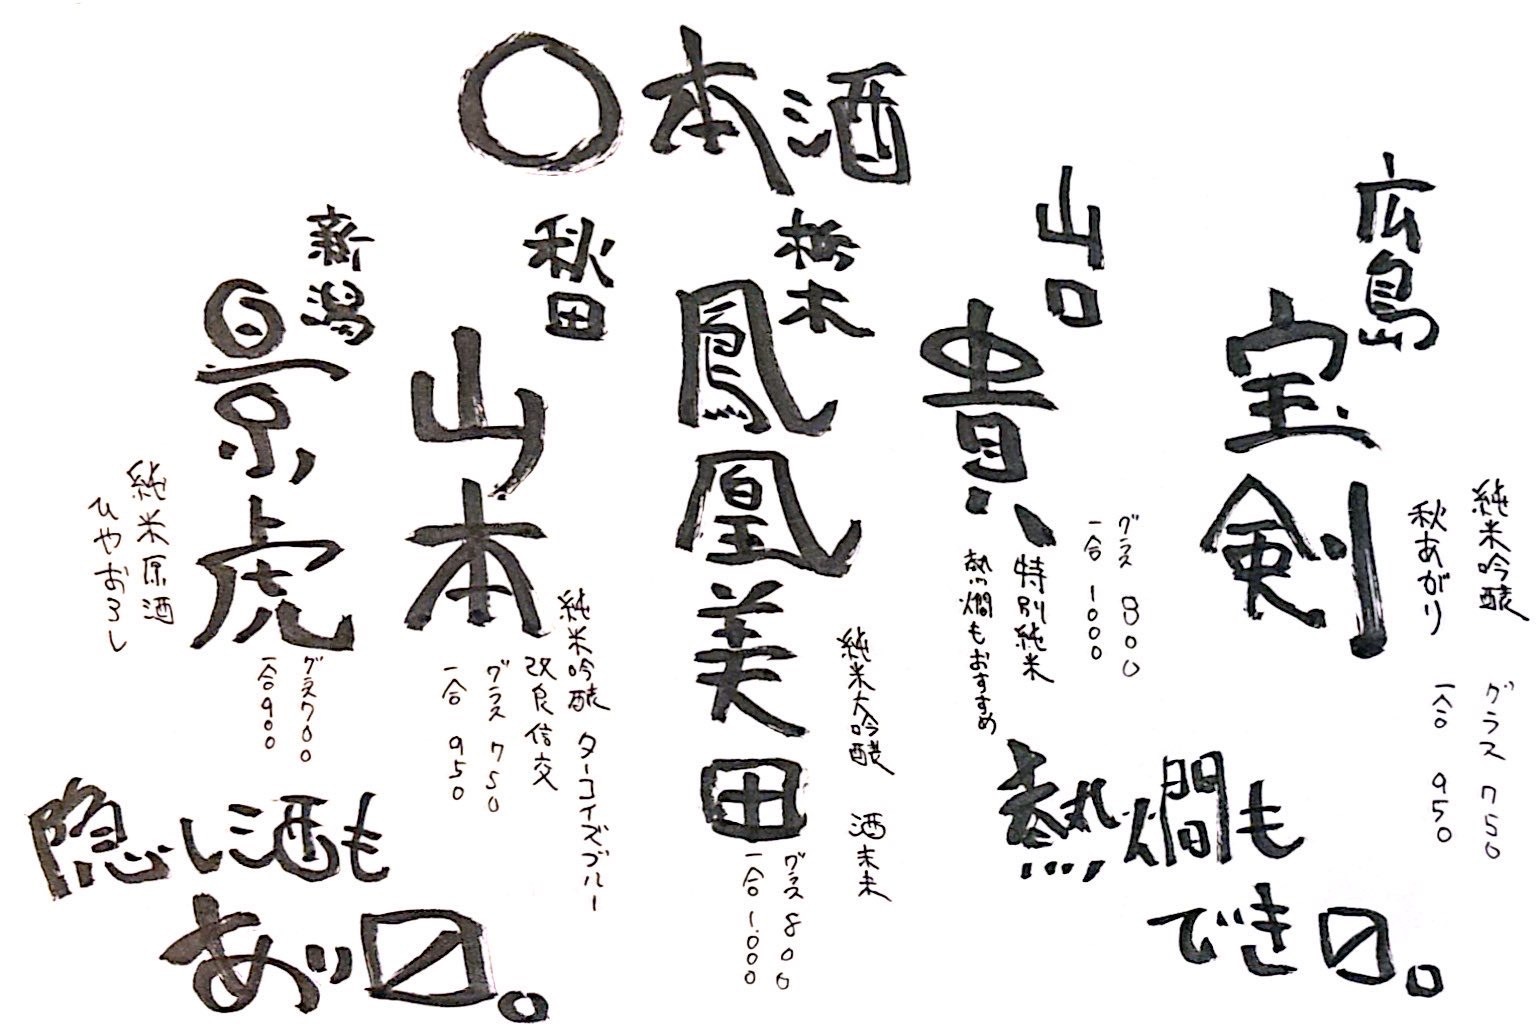 〇本酒
広島
宝剣
純米吟醸
秋あがり
グラス 750
一合 950
山口
貴
特別純米
熱燗もおすすめ
グラス 800
一合 1000
熱燗も
でき〼。
栃木
鳳凰美田
純米大吟醸 酒未来
グラス 800
一合 1.000
秋田
山本
純米吟醸 ターコイズブルー
改良信交
グラス 750
一合 950
新潟
景虎
純米原酒
ひやおろし
グラス700
一合900
隠し酒も
あり〼。